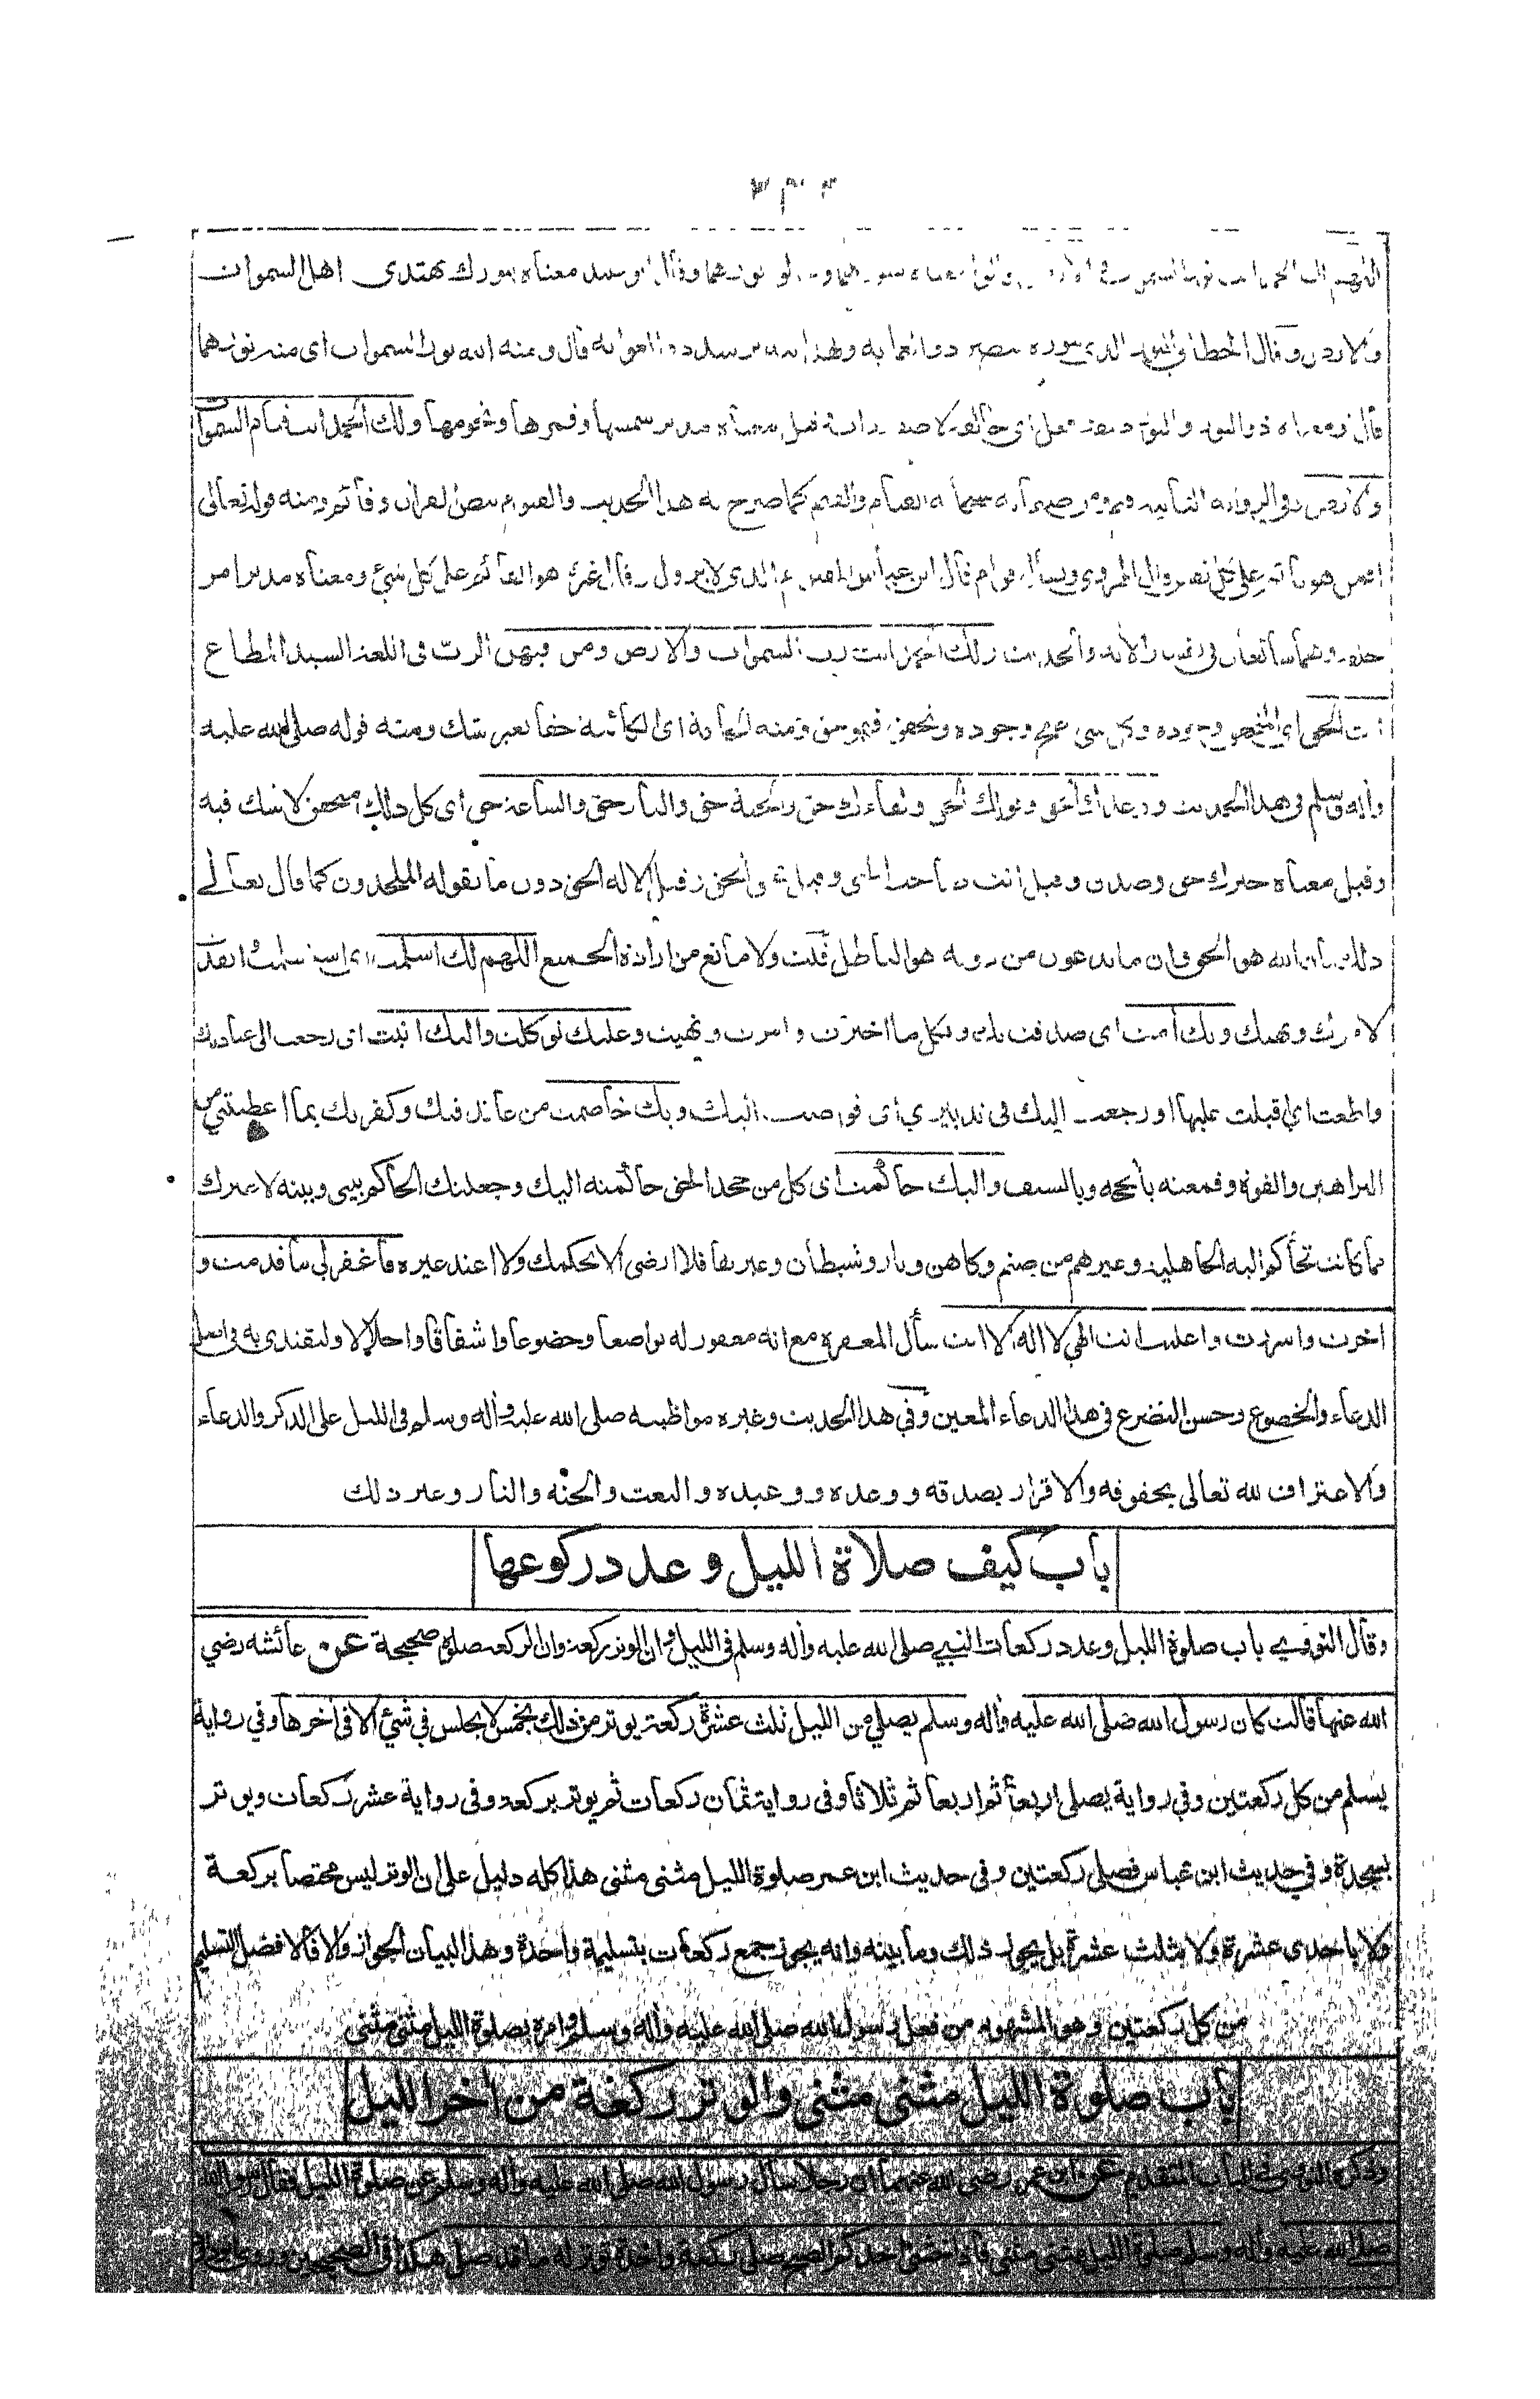 اللهم لك الحمد انت نور السموات والارض معناه بنورك يهتدى اهل السموات
والارض وقال الخطابى قال ومنه الله نور السموات اى منه نورهما
قال ومعناه ذو النور معناه مدبر شمسها وقمرها ونجومها ولك الحمد انت قيام السموات
والارض وفى الرواية الثانية قيم كما صرح به هذا الحديث والقيوم بنص القران وقائم ومنه قوله تعالى
افمن هو قائم على كل نفس قال الهروى ويقال قوام قال ابن عباس القيوم الذى لا يزول وقال غيره هو القائم على كل شئ ومعناه مدبر امر
خلقه وهما سائغان فى تفسير الاية والحديث ولك الحمد انت رب السموات والارض ومن فيهن الرب فى اللغة السيد المطاع
انت الحق اى المتحقق وجوده وكل شئ صح وجوده وتحقق فهو حق ومنه الحاقة اى الكائنة حقا بغير شك ومنه قوله صلى الله عليه
وآله وسلم فى هذا الحديث ووعدك الحق وقولك الحق ولقاءك حق والجنة حق والنار حق والساعة حق اى كل ذلك متحقق لا شك فيه
وقيل معناه خبرك حق وصدق وقيل انت صاحب الحق وقيل الاله الحق دون ما يقوله الملحدون كما قال تعالى
ذلك بان الله هو الحق وان ما يدعون من دونه هو الباطل قلت ولا مانع من ارادة الجميع اللهم لك اسلمت اى استسلمت وانقدت
لامرك ونهيك وبك آمنت اى صدقت بك وبكل ما اخبرت وامرت ونهيت وعليك توكلت واليك انبت اى رجعت الى عبادتك
واطعت اى اقبلت عليها او رجعت اليك فى تدبيرى اى فوضت اليك وبك خاصمت من عاند فيك وكفر بك بما اعطيتنى من
البراهين والقوة وقمعته بالحجة وبالسيف واليك حاكمت اى كل من جحد الحق حاكمته اليك وجعلتك الحاكم بينى وبينه لا غيرك
مما كانت تحاكم اليه الجاهلية وغيرهم من صنم وكاهن ونار وشيطان وغيرها فلا ارضى الا بحكمك ولا اعتمد غيره فاغفر لى ما قدمت و
اخرت واسررت واعلنت انت الهى لا اله الا انت سأل المغفرة مع انه مغفور له تواضعا وخضوعا واشفاقا واجلالا وليقتدى به فى اصل
الدعاء والخضوع وحسن التضرع فى هذا الدعاء المعين وفى هذا الحديث وغيره مواظبته صلى الله عليه وآله وسلم فى الليل على الذكر والدعاء
والاعتراف لله تعالى بحقوقه والاقرار بصدقه ووعده ووعيده والبعث والجنة والنار وغير ذلك
باب كيف صلاة الليل وعدد ركوعها
وقال النووى باب صلوة الليل وعدد ركعات النبى صلى الله عليه وآله وسلم فى الليل وان الوتر ركعة وان الركعة صلوة صحيحة عن عائشة رضي
الله عنها قالت كان رسول الله صلى الله عليه وآله وسلم يصلي من الليل ثلث عشرة ركعة يوتر من ذلك بخمس لا يجلس في شئ الا فى آخرها وفي رواية
يسلم من كل ركعتين وفي رواية يصلى اربعا ثم اربعا ثم ثلاثا وفى رواية ثمان ركعات ثم يوتر بركعة وفى رواية عشر ركعات ويوتر
بسجدة وفي حديث ابن عباس فصلى ركعتين وفى حديث ابن عمر صلوة الليل مثنى مثنى هذا كله دليل على ان الوتر ليس مختصا بركعة
ولا باحدى عشرة ولا بثلث عشرة بل يجوز ذلك وما بينه وانه يجوز جمع ركعات بتسليمة واحدة وهذا لبيان الجواز والا فالافضل التسليم
من كل ركعتين وهو المشهور من فعل رسول الله صلى الله عليه وآله وسلم وامره بصلوة الليل مثنى مثنى
باب صلوة الليل مثنى مثنى والوتر ركعة من آخر الليل
وذكره النووى فى الباب المتقدم عن ابن عمر رضى الله عنهما ان رجلا سأل رسول الله صلى الله عليه وآله وسلم عن صلوة الليل فقال رسول الله
صلى الله عليه وآله وسلم صلوة الليل مثنى مثنى فاذا خشى احدكم الصبح صلى ركعة واحدة توتر له ما قد صلى هكذا فى الصحيحين